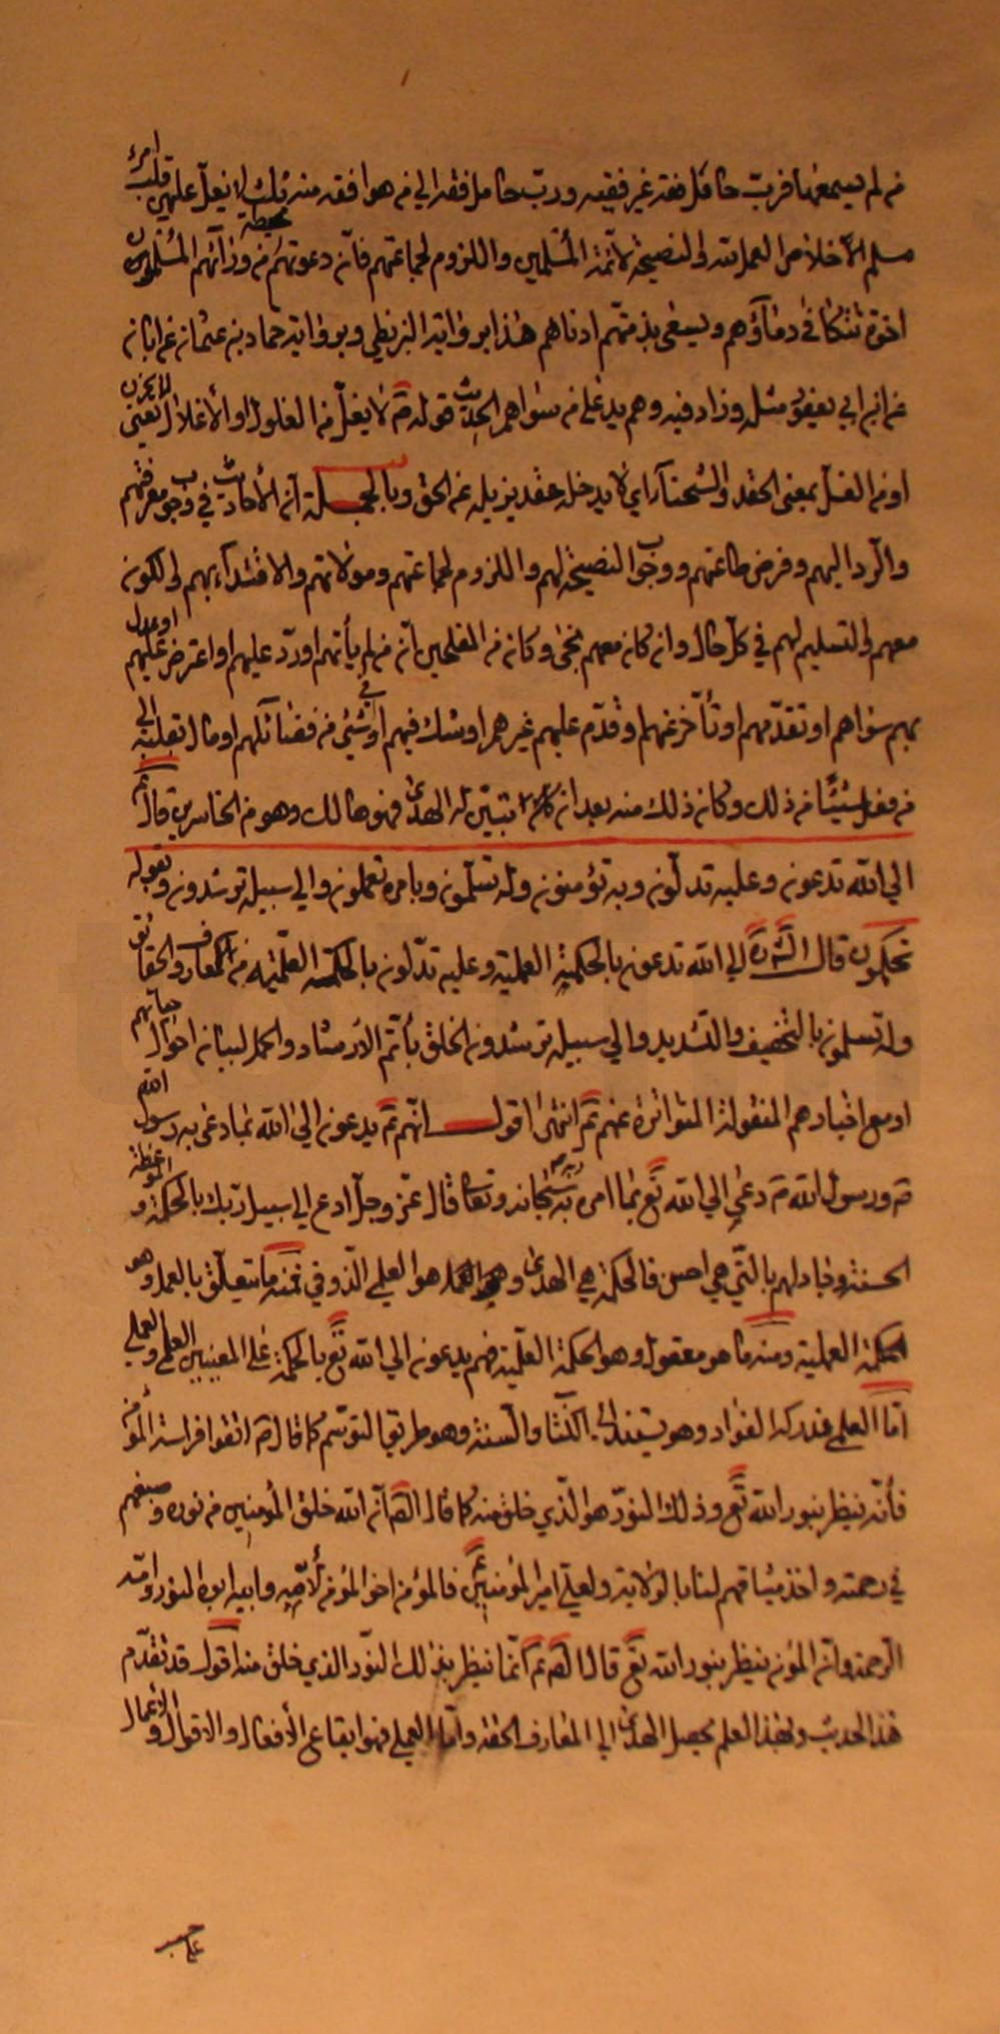 من لم يسمعها فربّ حامل فقه غير فقيه وربّ حامل فقه الي من هو افقه منه ثلث لا يغلّ عليهن قلب امرء
مسلم الاخلاص العمل لله والنصيحة لائمة المسلمين واللزوم لجماعتهم فانّ دعوتهم محيطة من ورائهم المسلمون
اخوة تتكافى دماؤهم ويسعى بذمتهم ادناهم هذا برواية البزنطي وبرواية حماد بن عثمان عن ابان
عن ابن ابي يعفور مثله وزاد فيه وهم يد على من سواهم الحديث قوله ص لا يغلّ من الغلول او الأغلال يعني لا يخون
او من الغلّ بمعنى الحقد والشحناء اي لا يدخله حقد يزيله عن الحق وبالجملة انّ الأحاديث في وجوب معرفتهم
والرّد اليهم وفرض طاعتهم ووجوب النصيحة لهم واللزوم لجماعتهم وموالاتهم والاقتداء بهم والكون
معهم والتسليم لهم في كلّ حال وانّ من كان معهم نجى وكان من المفلحين انّ من لم يأتهم او ردّ عليهم او اعترض عليهم او عدل
بهم سواهم او تقدّمهم او تأخّر عنهم او قدّم عليهم غيرهم او شك فيهم او في شيئ من فضائلهم او مال بقلبه الى
من فعل شيئًا من ذلك وكان ذلك منه بعد ان تبيّن له الهدى فهو هالك وهو من الخاسرين قال ع
الي الله تدعون وعليه تدلّون وبه تؤمنون وله تسلّمون وبامره تعملون والي سبيله ترشدون وبقوله
تحكمون قال الشّ ره الي الله تدعون بالحكمة العملية وعليه تدّلون بالحكمة العلميّه من المعارف والحقائق
وله تسلمون بالتخفيف والتشديد والي سبيله ترشدون الخلق بأتمّ الارشاد والحمل لبيان احوال حياتهم
او مع اخبارهم المنقولة المتواترة عنهم ع انتهى اقول انّهم ع يدعون الي الله بما دعى به رسول الله
ص ورسول الله ص دعى الي الله تع بما امره به ربّه سبحانه وتعا قال عزّ وجلّ ادع الي سبيل ربّك بالحكمة والموعظة
الحسنة وجادلهم بالتّي هي احسن فالحكمة هي الهدى هو العلمي الذّوقي فمنه ما يتعلّق بالعمل وهو
الحكمة العملية ومنه ما هو معقول وهو الحكمة العلّمية فهم يدعون الي الله تع بالحكمة على المعنيين العلمي والعملي
امّا العلمي فمدركه الفؤاد وهو يستند الى الكتاب والسنة وهو طريق التوسّم كما قال ص اتقوا فراسة المؤمن
فأنّه ينظر بنور الله تع وذلك النور هو الّذي خلق منه كما قال الص ع انّ الله خلق المؤمنين من نوره وصبغهم
في رحمته واخذ ميثاقهم لنا بالولاية ولعلي امير المؤمنين ع فالمؤمن اخو المؤمن لأبيه وامه ابوه النور وامّه
الرحمة وانّ المؤمن ينظر بنور الله تع قال الص ع انّما ينظر بذلك النوّر الذي خلق منه اقول قد تقدّم
هذا الحديث وبهذا العلم يحصل الهدى الي المعارف الحقة وامّا العملي فهو ايقاع الأفعال والاقوال والاعمال